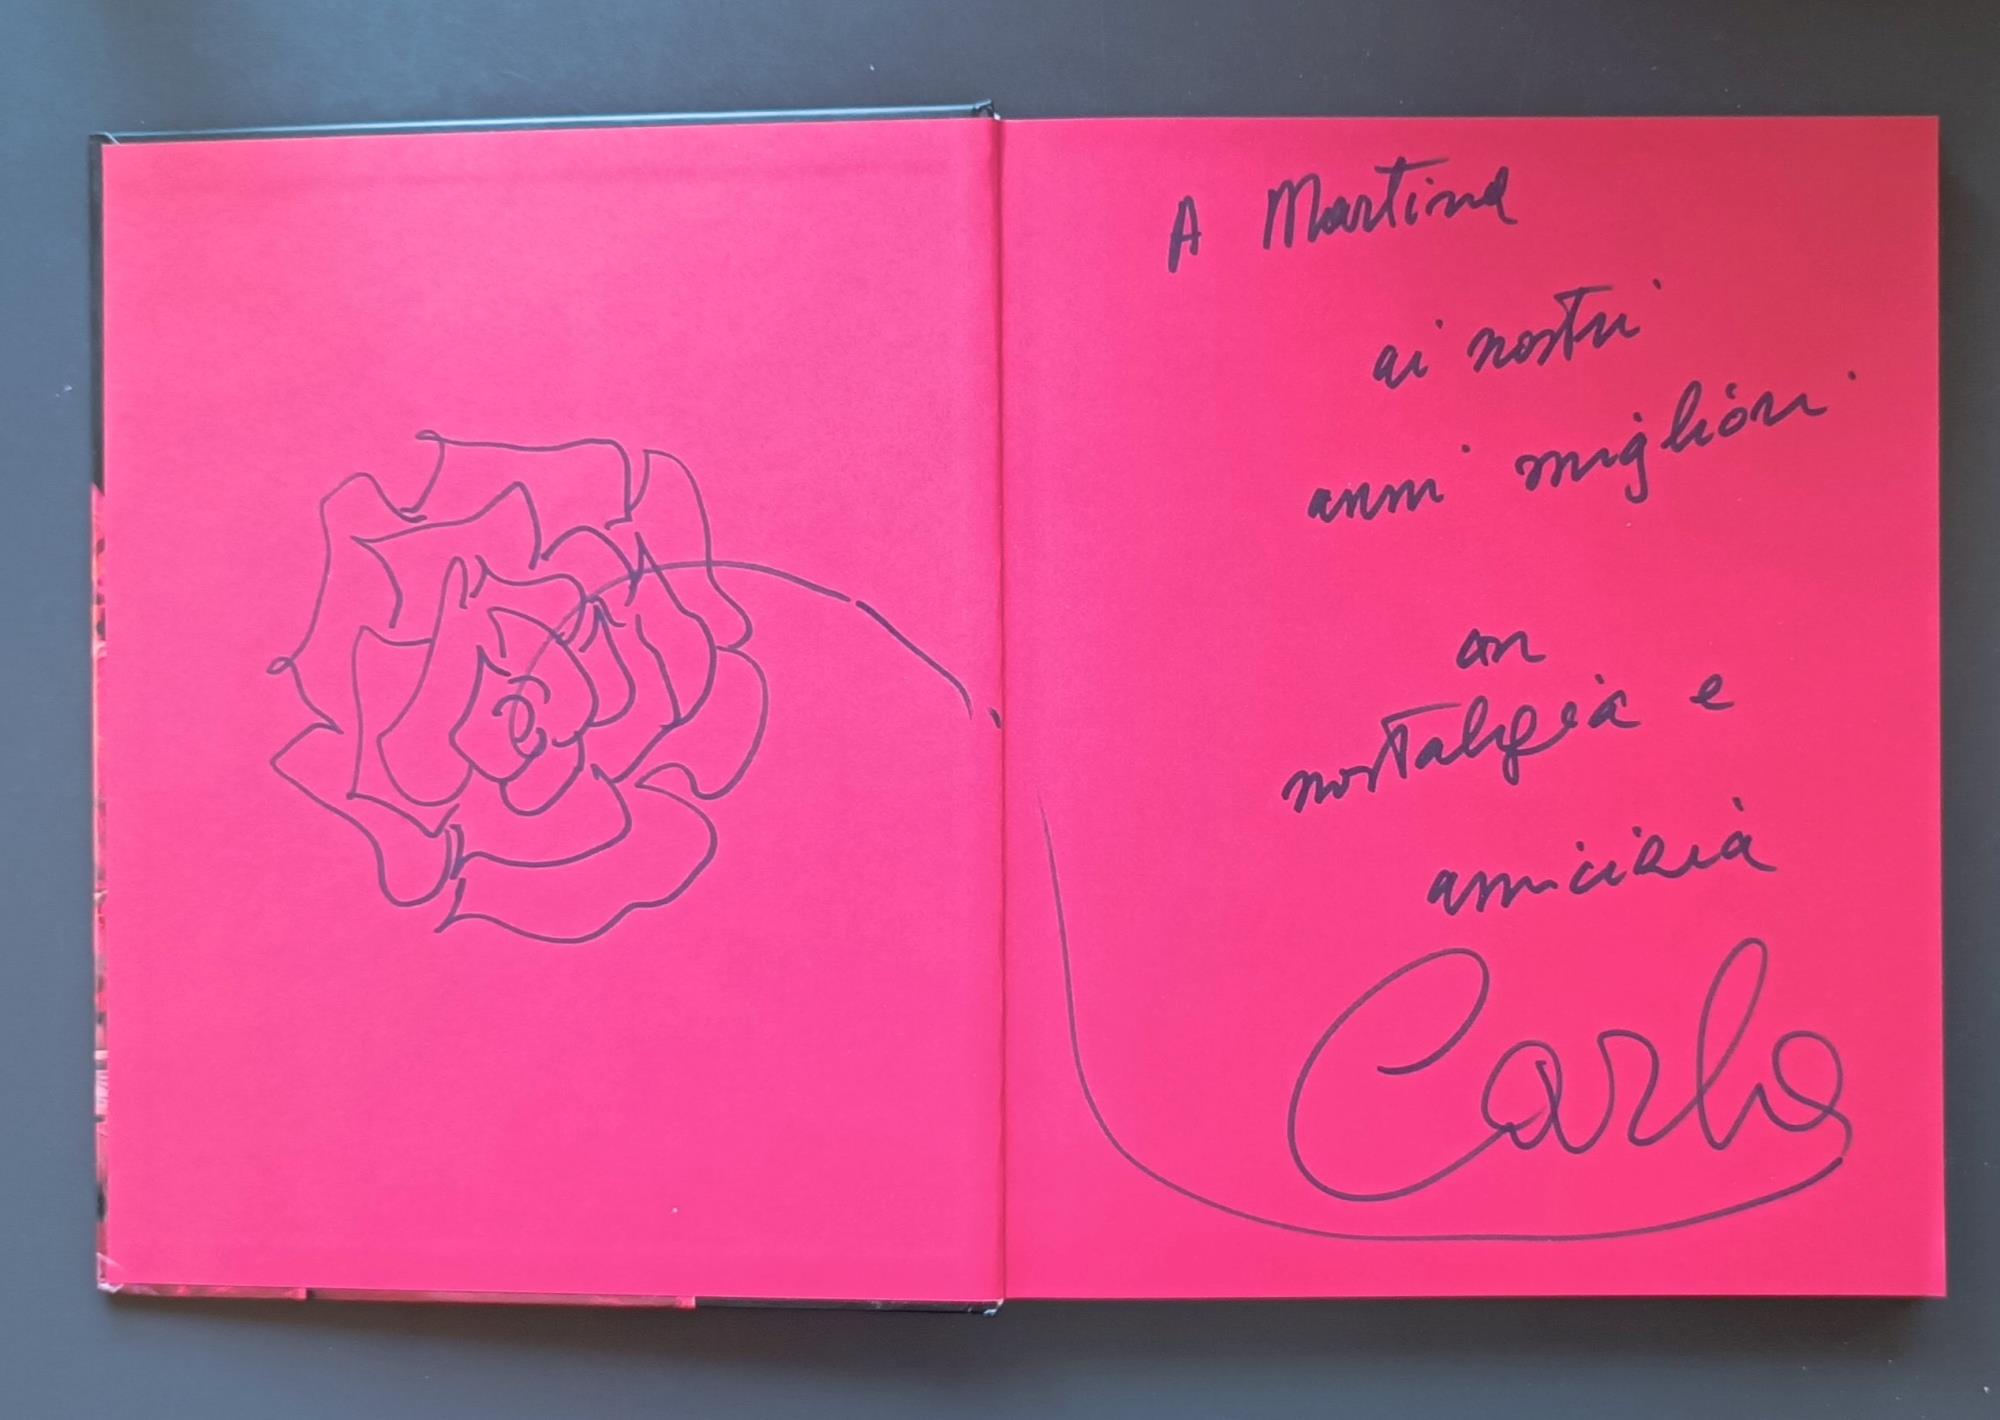 A Martina
ai nostri
anni migliori
con
nostalgia e
amicizia
Carlo